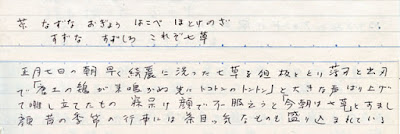 芹 なずな おぎょう はこべ ほとけのざ
すずな すずしろ これぞ七草
正月七日の朝早く綺麗に洗った七草を俎板にとり薄刃と出刃
で「唐土の鶏が 鳴かぬ先に トコトンのトントン」と大きな声はり上げ
て囃し立てたもの 寝呆け顔で不服そうと今朝は七草とすまし
顔 昔の季節の行事には 茶目っ気なものも盛り込まれている